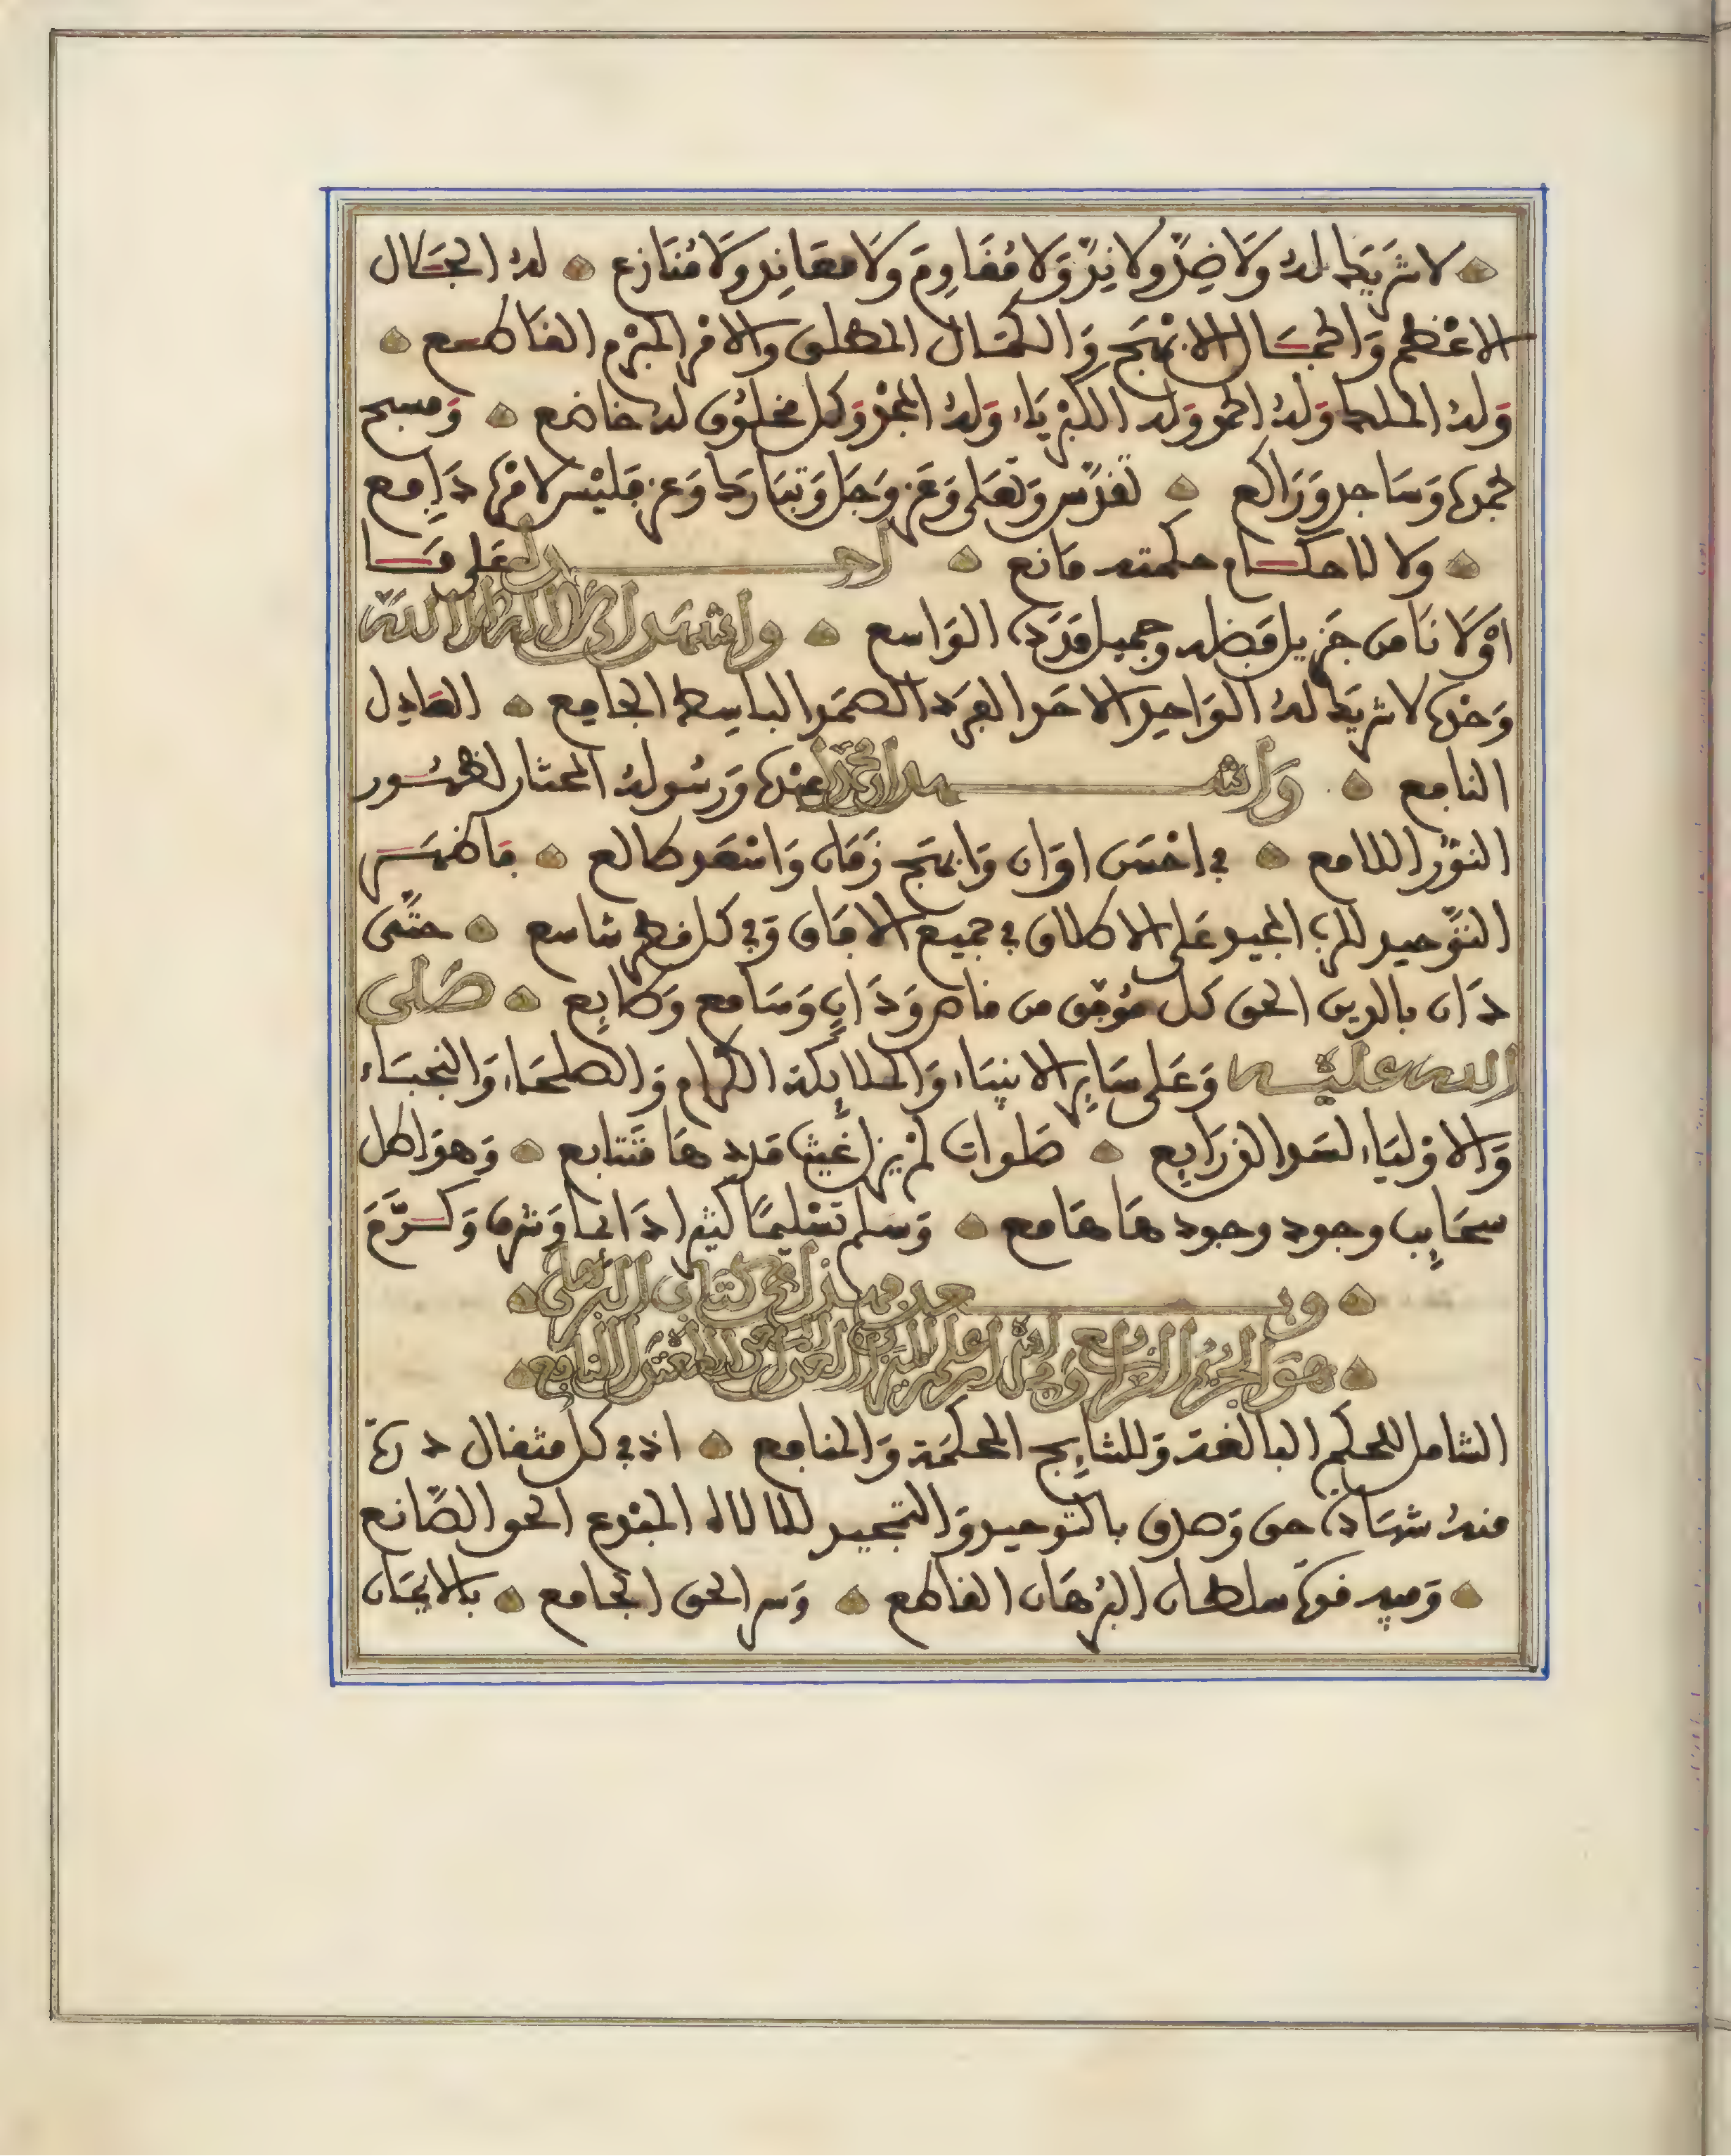 لا شريك له ولا ضد ولا ند ولا مقاوم ولا معاند ولا منازع له الجلال
الاعظم والجمال الابهج والكمال المطلق والامر المبرم القاطع
وله الملك وله الحمد وله الكبرياء وله المجد وكل مخلوق له خاضع ومسبح
بحمده وساجد وراكع تقدس وتعلى وعز وجل وتبارك وعز فليس لامره دافع
ولا لاحكام حكمته مانع احمده على ما
اولانا من جزيل فضله وجميل الواسع واشهد ان لا اله الا الله
وحده لا شريك له الواحد الاحد الفرد الصمد الباسط الجامع العادل
النافع واشهد ان محمدا عبده ورسوله المختار لظهور
النور اللامع في احسن اوان وابهج زمان واسعد طالع فاظهر
التوحيد للرب المجيد على الاطلاق في جميع الافاق وفي كل قطر شاسع حتى
دان بالدين الحق كل موفق من قاص ودان وسامع وطايع صلى
الله عليه وعلى ساير الانبياء والملايكة الكرام والصلحاء والنجباء
والاولياء لسد الذرايع صلوات لم يزل غيث مددها متتابع وهواطل
سحايب وجود وجودها هامع وسلم تسليما كثيرا دائما وشرف وكرم
وبعد فهذا في كتاب البرهان
هو الجزء الرابع
الشامل للحكم البالغة وللنتايج المحكمة والمنافع اذ في كل مثقال ذرة
منه شهادة حق وصدق بالتوحيد والتمجيد للالاه المبدع الحق الصانع
وفيه قوة سلطان البرهان القاطع وسر الحق الجامع بالايمان